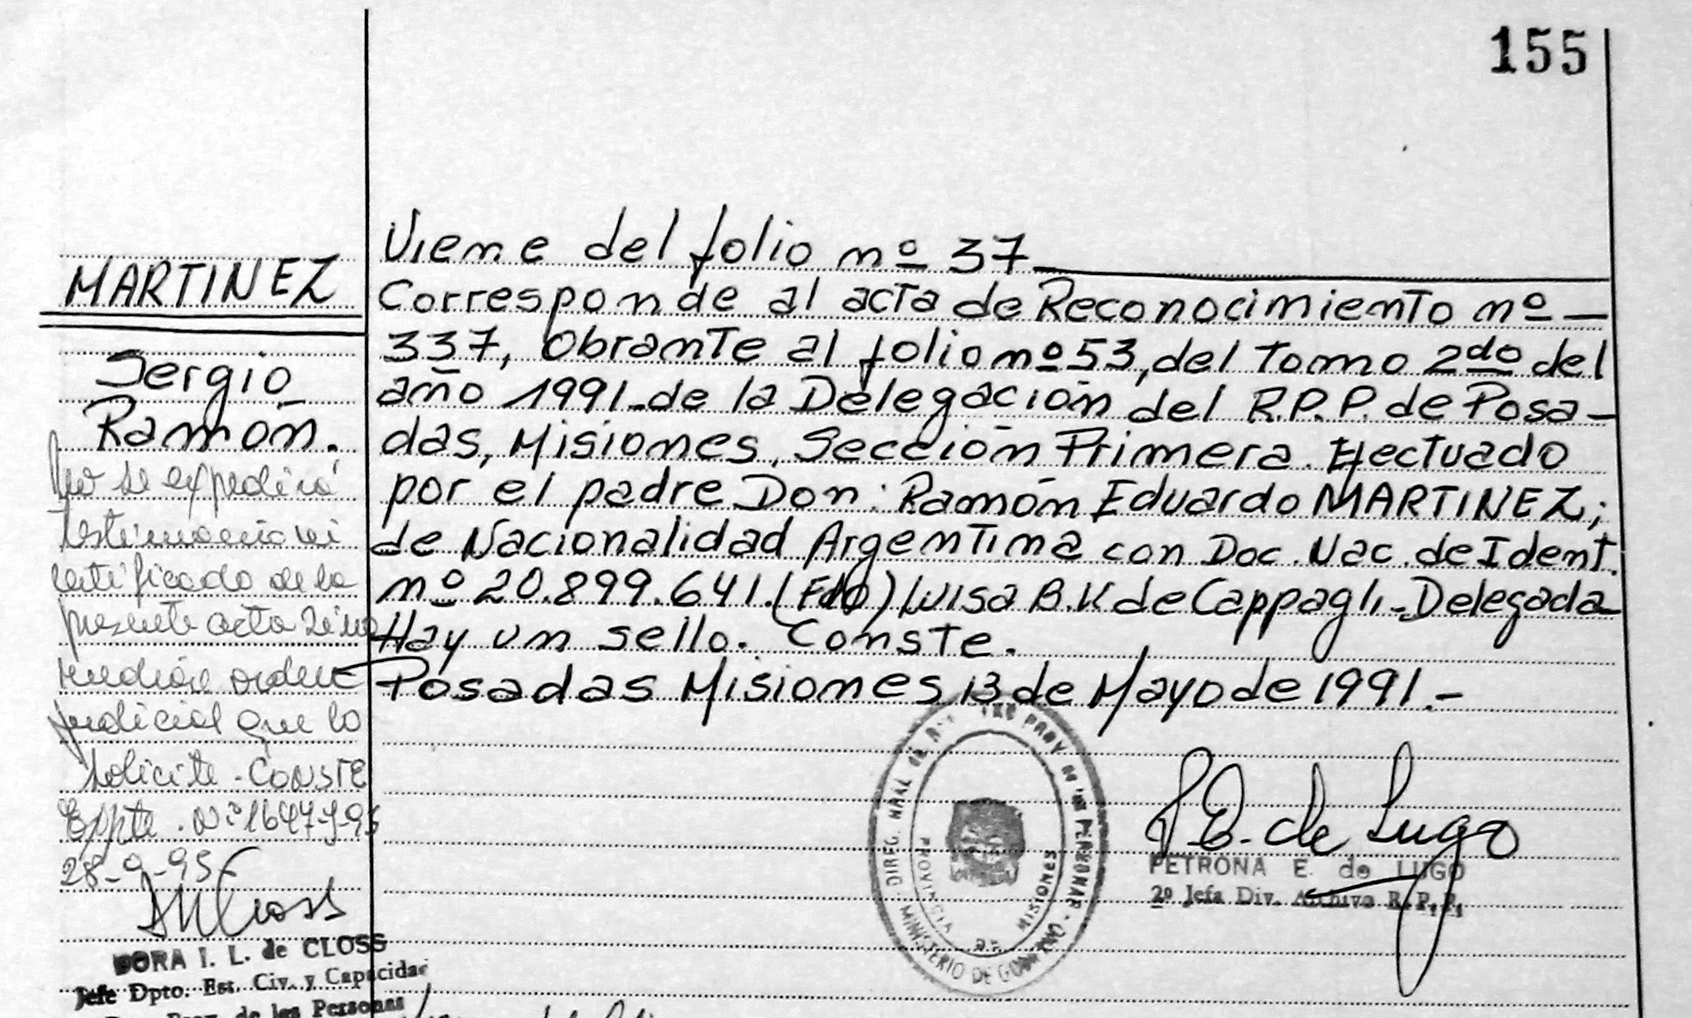 155
MARTINEZ
Sergio
Ramón.
No se expedirá
testimonio ni
certificado de la
presente acta si no
mediare orden
judicial que lo
solicite - CONSTE
Expte. Nº 1647-
28-9-95
DORA I. L. de CLOSS
Jefe Dpto. Est. Civ. y Capacidad
de las Personas
Viene del folio nº 37
Corresponde al acta de Reconocimiento nº —
337, Obrante al folio nº 53, del Tomo 2do del
año 1991 de la Delegación del R.P.P. de Posa-
das, Misiones, Sección Primera. Efectuado
por el padre Don: Ramón Eduardo MARTINEZ;
de Nacionalidad Argentina con Doc. Nac. de Ident.
nº 20.899.641. (Fdo) Luisa B.V de Cappagli - Delegada
Hay un sello. Conste.
Posadas Misiones, 13 de Mayo de 1991.-
P E. de Lugo
PETRONA E. de LUGO
2º Jefa Div. Archivo R. P. P.
PROVINCIA DE MISIONES
MINISTERIO DE